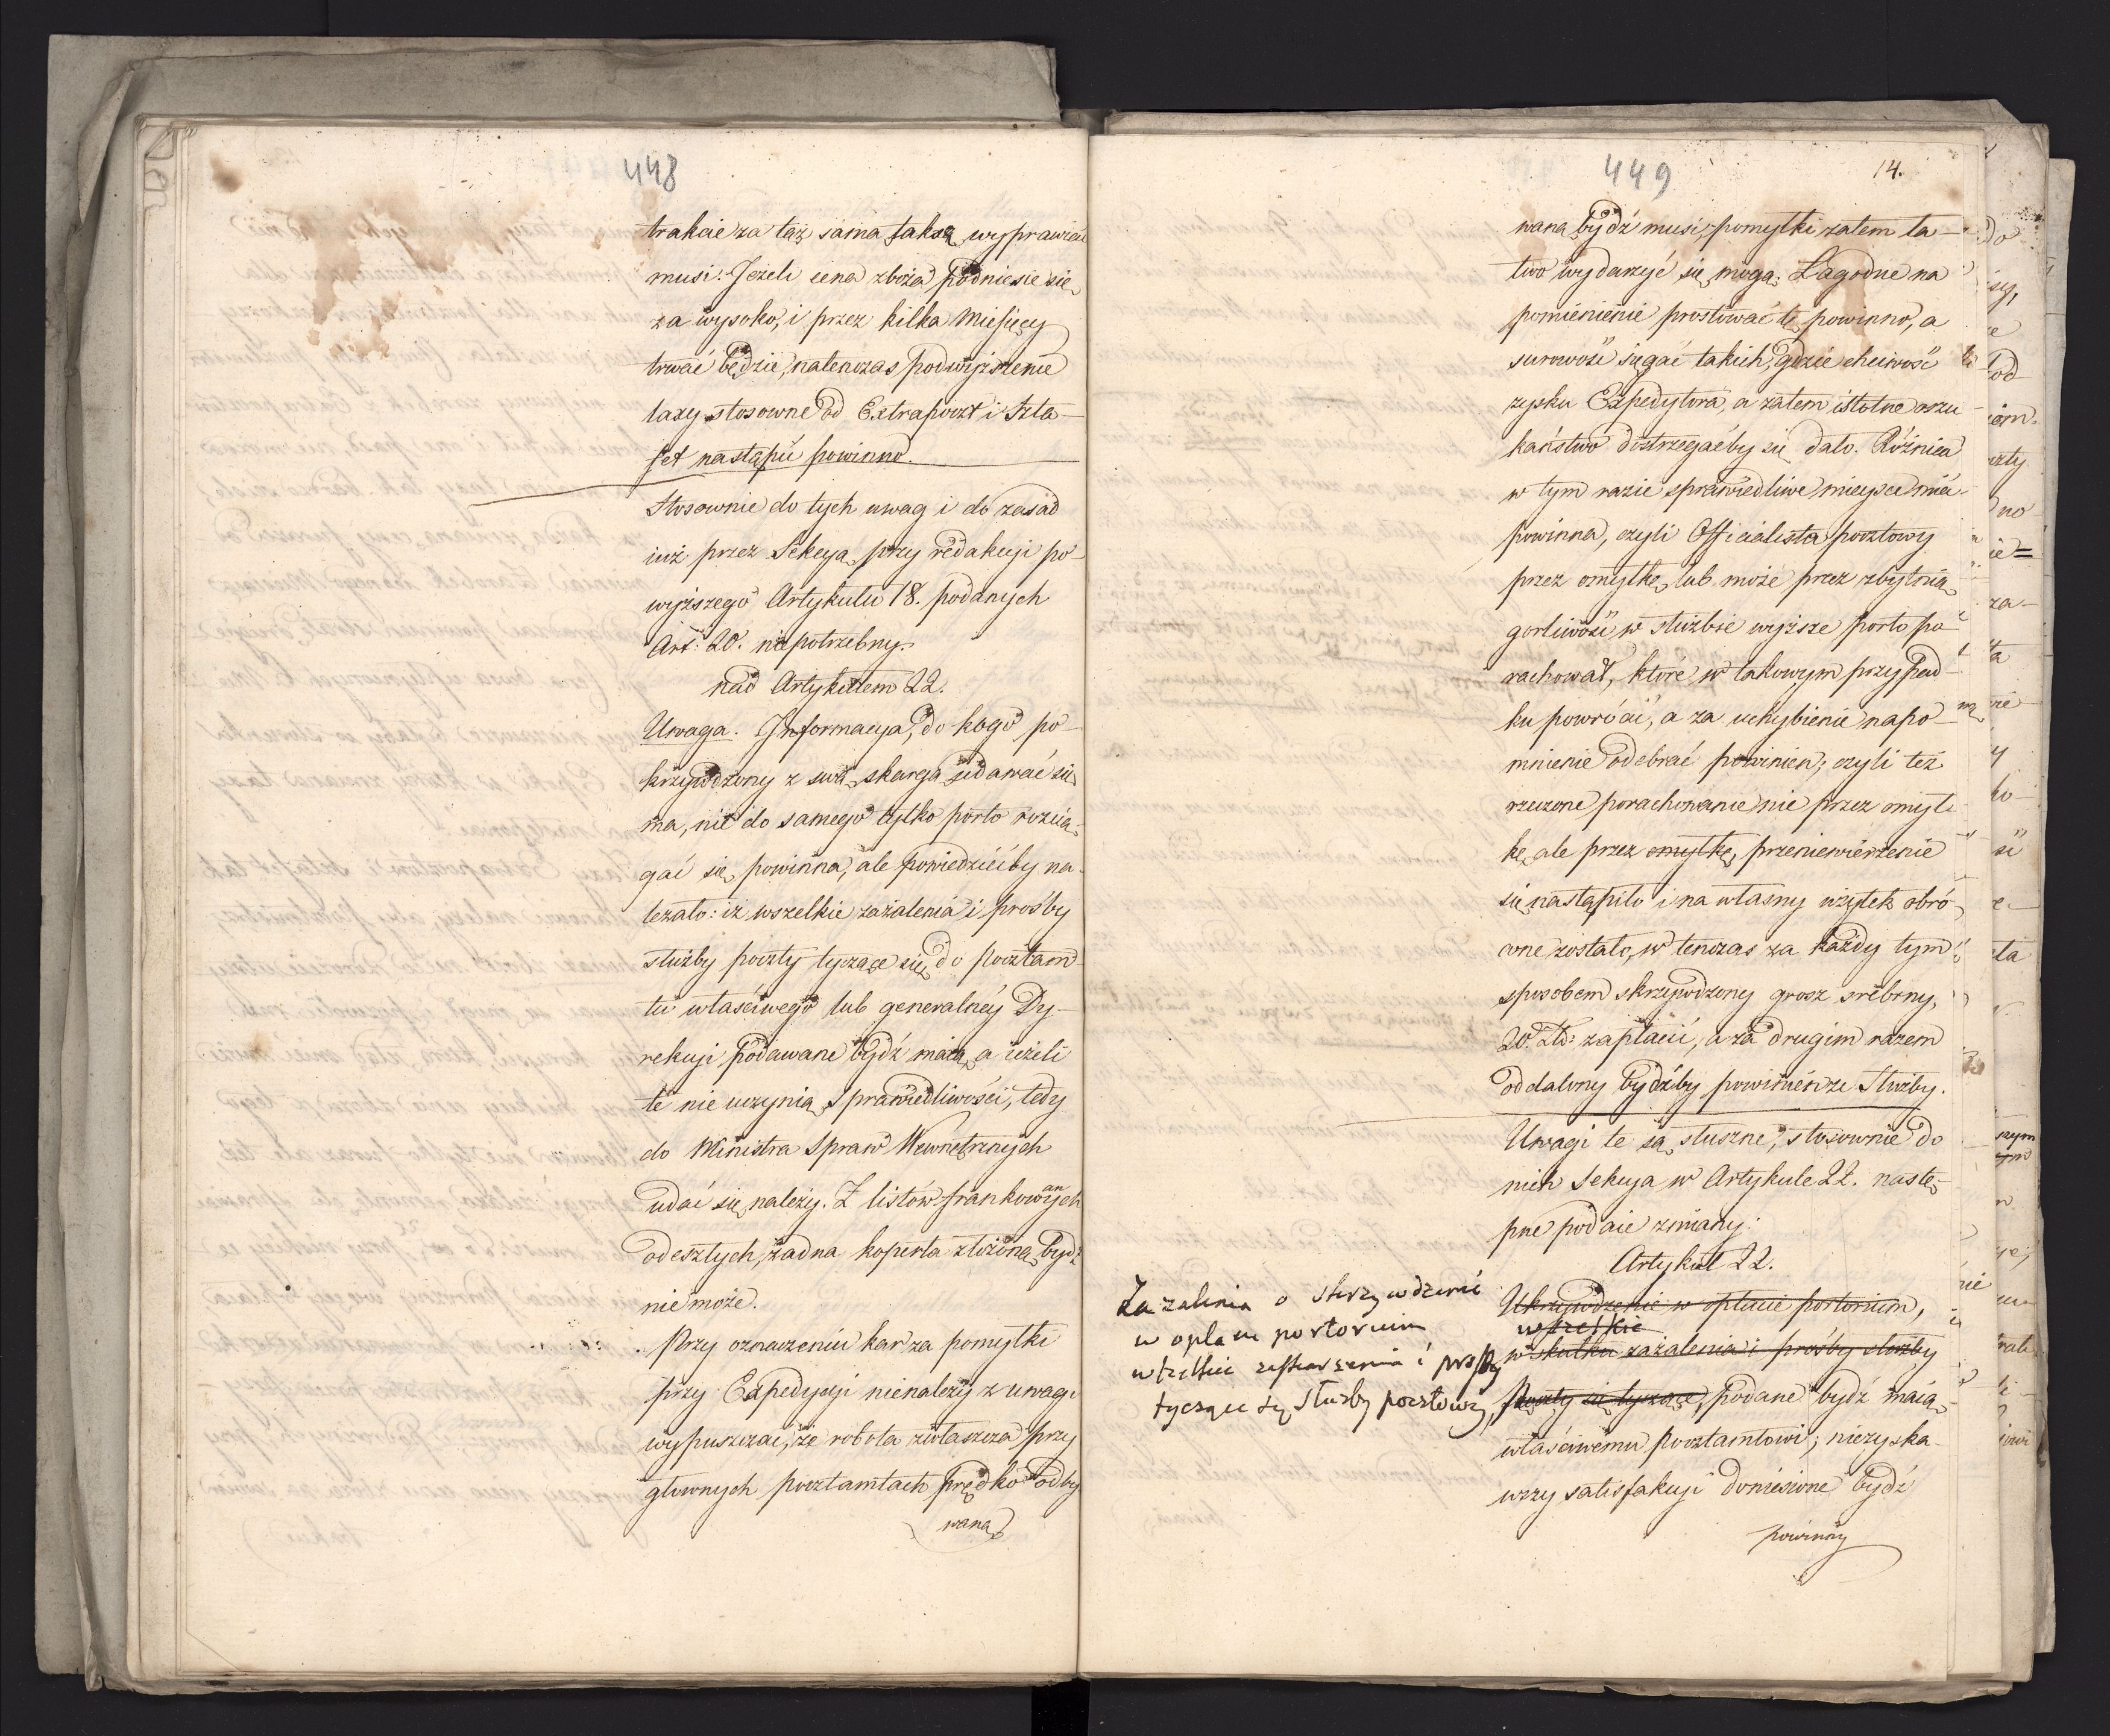 448
trakcie za taż sama taksą wyprawiać
musi. Jeżeli cena zboża podniesie się
za wysoko, i przez kilka Miesięcy
trwać będzie, natenczas podwyższenie
taxy stosowne od Extrapoczt i szta-
fet nastąpić powinno.
Stosownie do tych uwag i do zasad
iuż przez Sekcyą przy redakcji po-
wyższego Artykułu 18. podanych
Art: 20. niepotrzebny.
nad Artykułem 22.
Uwaga. Informacya, do kogo po-
krzywdzony z swą skargą udawać się
ma, nie do samego tylko porto rozcią-
gać się powinna, ale powiedziećby na-
leżało: iż wszelkie zażalenia i prośby
służby poczty tyczące się do pocztam-
tu właściwego lub generalnéy Dy-
rekcyi podawane bydź maią, a ieżeli
te nie uczynią sprawiedliwości, tedy
do Ministra Spraw Wewnętrznych
udać się należy. Z listów frankowanych
odeszłych, żadna koperta złożoną bydź
nie może.
Przy oznaczeniu kar za pomyłki
przy Expedycyi nienależy z uwagi
wypuszczać, że robota zwłaszcza przy
głownych pocztamtach prędko odby
wana
449
14.
wana bydź musi, pomyłki zatem ła-
two wydarzyć się mogą. Łagodne na
pomienienie prostować tę powinno, a
surowość sięgać takich, gdzie chciwość
zysku Expedytora, a zatem istotne oszu
kaństwo dostrzegaćby się dało. Różnica
w tym razie sprawiedliwe mieysce mieć
powinna, czyli Officialista pocztowy
przez omyłkę, lub może przez zbytnią
gorliwość w służbie wyższe porto po
rachował, które w takowym przypad-
ku powrócić, a za uchybienie napo-
mnienie odebrać powinien; czyli też
rzeczone porachowanie nie przez omył-
kę, ale przez omyłkę, przeniewierzenie
się nastąpiło i na własny użytek obró-
cone zostało, w tenczas za każdy tym
sposobem skrzywdzony grosz srébrny,
20. Zł: zapłacić, a za drugim razem
oddalony bydźby powinién ze Służby.
Uwagi te są słuszne, stosownie do
nich Sekcya w Artykule 22. nastę-
pne podaie zmiany:
Artykuł 22.
Ukrzywdzenie w opłacie portorium,
wszelkie
w skutku zażalenia i prośby służby
poczty się tyczące, podane bydź maią
właściwemu pocztamtowi; niezyska-
wszy satisfakcyi doniesione bydź
powinny
Zażalenia o skrzywdzenie
w opłacie portorium
wszelkie zaskarżenia i prośby
tyczące się służby pocztowey,